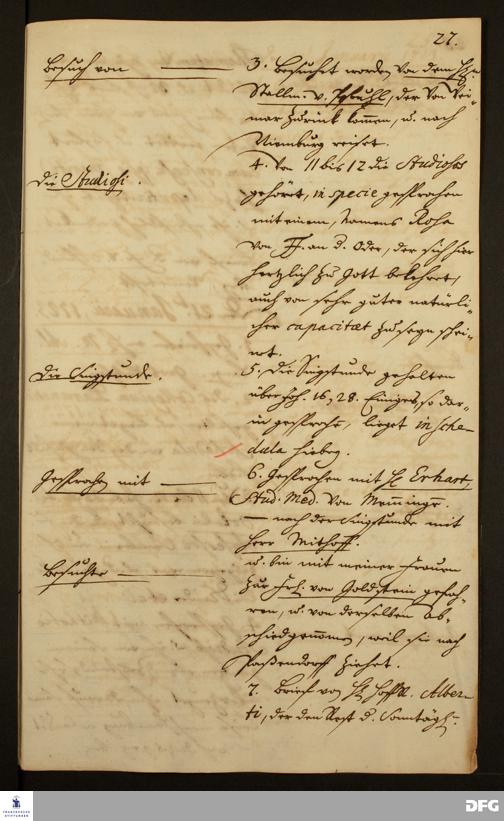 27.
Besuch von
3. Besuchet worden von dem H.
Stallm. v. Pfuhl, der von Wei-
mar zurück kommen, u. nach
Nienburg reiset.
Die Studiosi.
4. Von 11 bis 12 die Studiosos
gehöret, in specie gesprochen
mit einem, Namens Rosa
von FF. an d. Oder, der sich hier
hertzlich zu Gott bekehret,
auch von sehr guter natürli-
cher capacitaet zu seyn schei-
net.
Die Singstunde.
5. Die Singstunde gehalten
über Joh. 16, 28. Einiges, so dar-
in gesprochen, lieget in sche-
dula hiebey.
Gesprochen mit
6. Gesprochen mit H. Erhart,
Stud. Med. von Memmingen.
– nach der Singstunde mit
Herr Mithoff.
Besuchte
u. bin mit meiner Frauen
zur Frl. von Goldstein gefah-
ren, u. von derselben ab-
schied genommen, weil sie nach
Passendorff ziehet.
7. Brief von H. Hoffr. Alber-
ti, der den Rest d. Sonntägl.
FRANCKESCHE STIFTUNGEN
DFG